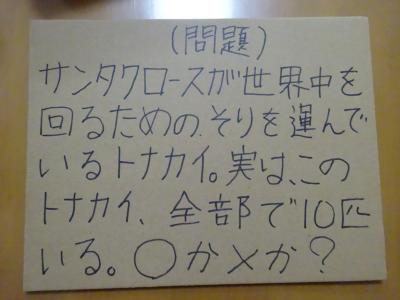 (問題)
サンタクロースが世界中を
回るための、そりを運んで
いるトナカイ。実は、この
トナカイ、全部で10匹
いる。○か×か?